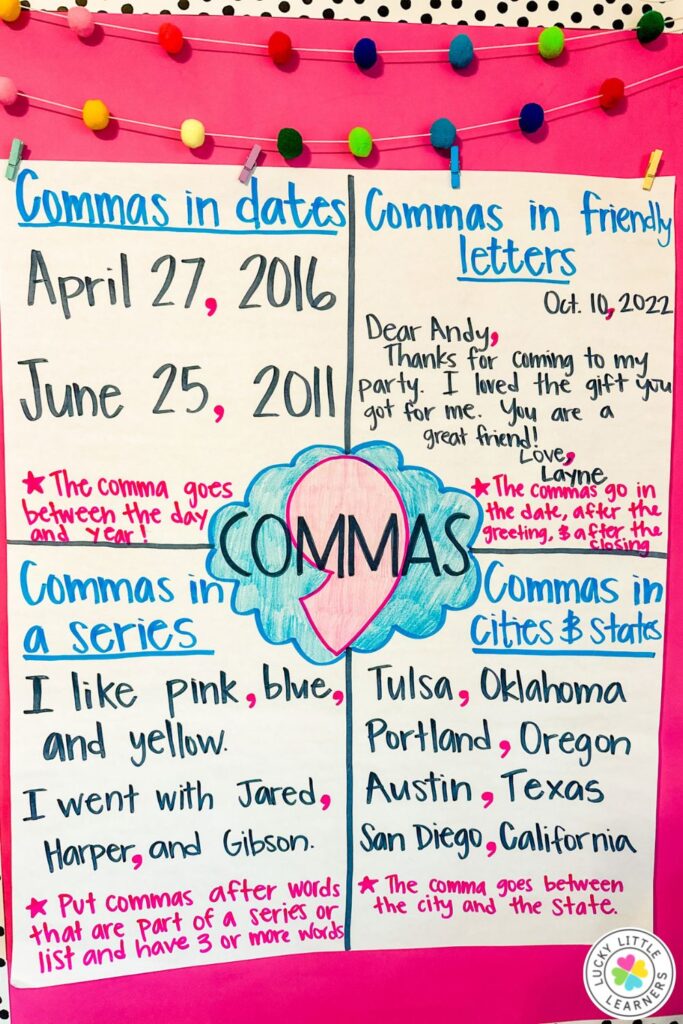 Commas in dates
April 27, 2016
June 25, 2011
★ The comma goes
between the day
and year!
Commas in friendly
letters
Oct. 10, 2022
Dear Andy,
Thanks for coming to my
party. I loved the gift you
got for me. You are a
great friend!
Love,
Layne
★ The commas go in
the date, after the
greeting, & after the
closing
COMMAS
Commas in
a series
I like pink, blue,
and yellow.
I went with Jared,
Harper, and Gibson.
★ Put commas after words
that are part of a series or
list and have 3 or more words
Commas in
cities & states
Tulsa, Oklahoma
Portland, Oregon
Austin, Texas
San Diego, California
★ The comma goes between
the city and the state.
LUCKY LITTLE
LEARNERS